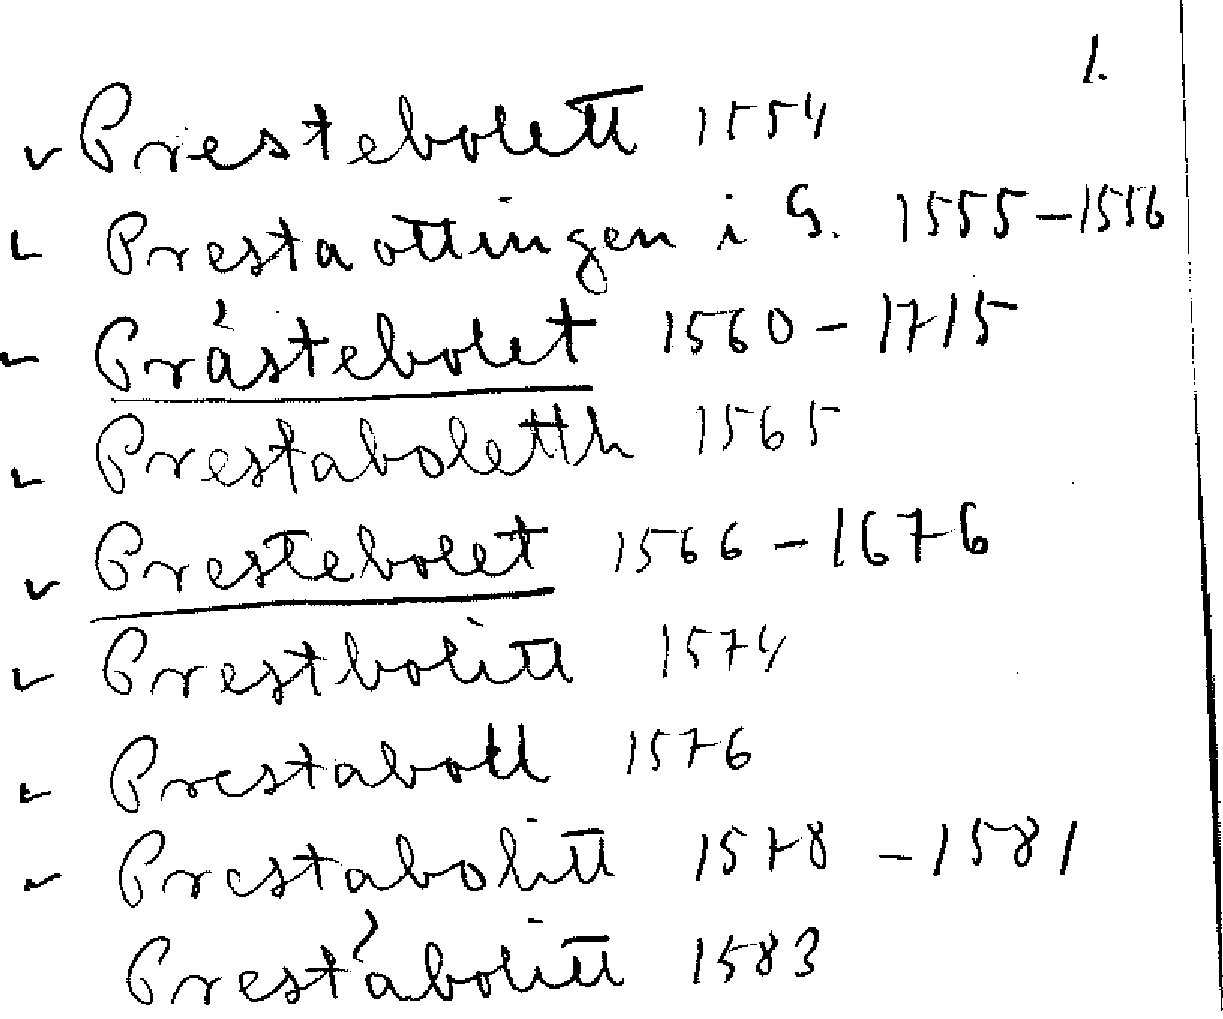 1.
Prestebolett 1554
Prestaottingen i G. 1555-1556
Prästebolet 1560-1715
Prestaboletth 1565
Prestebolet 1566-1676
Prestbolitt 1574
Prestaboll 1576
Prestabolitt 1578-1581
Prestäbolitt 1583